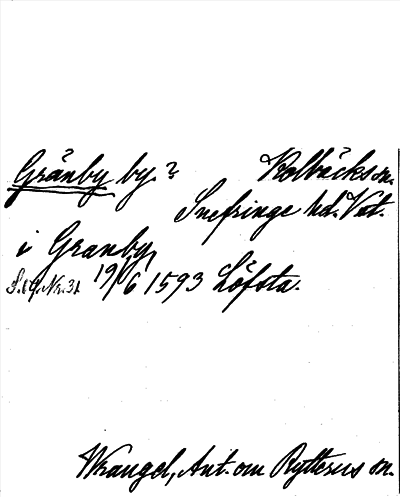 Gränby by.? Kolbäcks sn.
Snefringe hd. Vstm.
i Granby
19/6 1593 Löfsta.
Wrangel, Ant. om Rytterns sn.